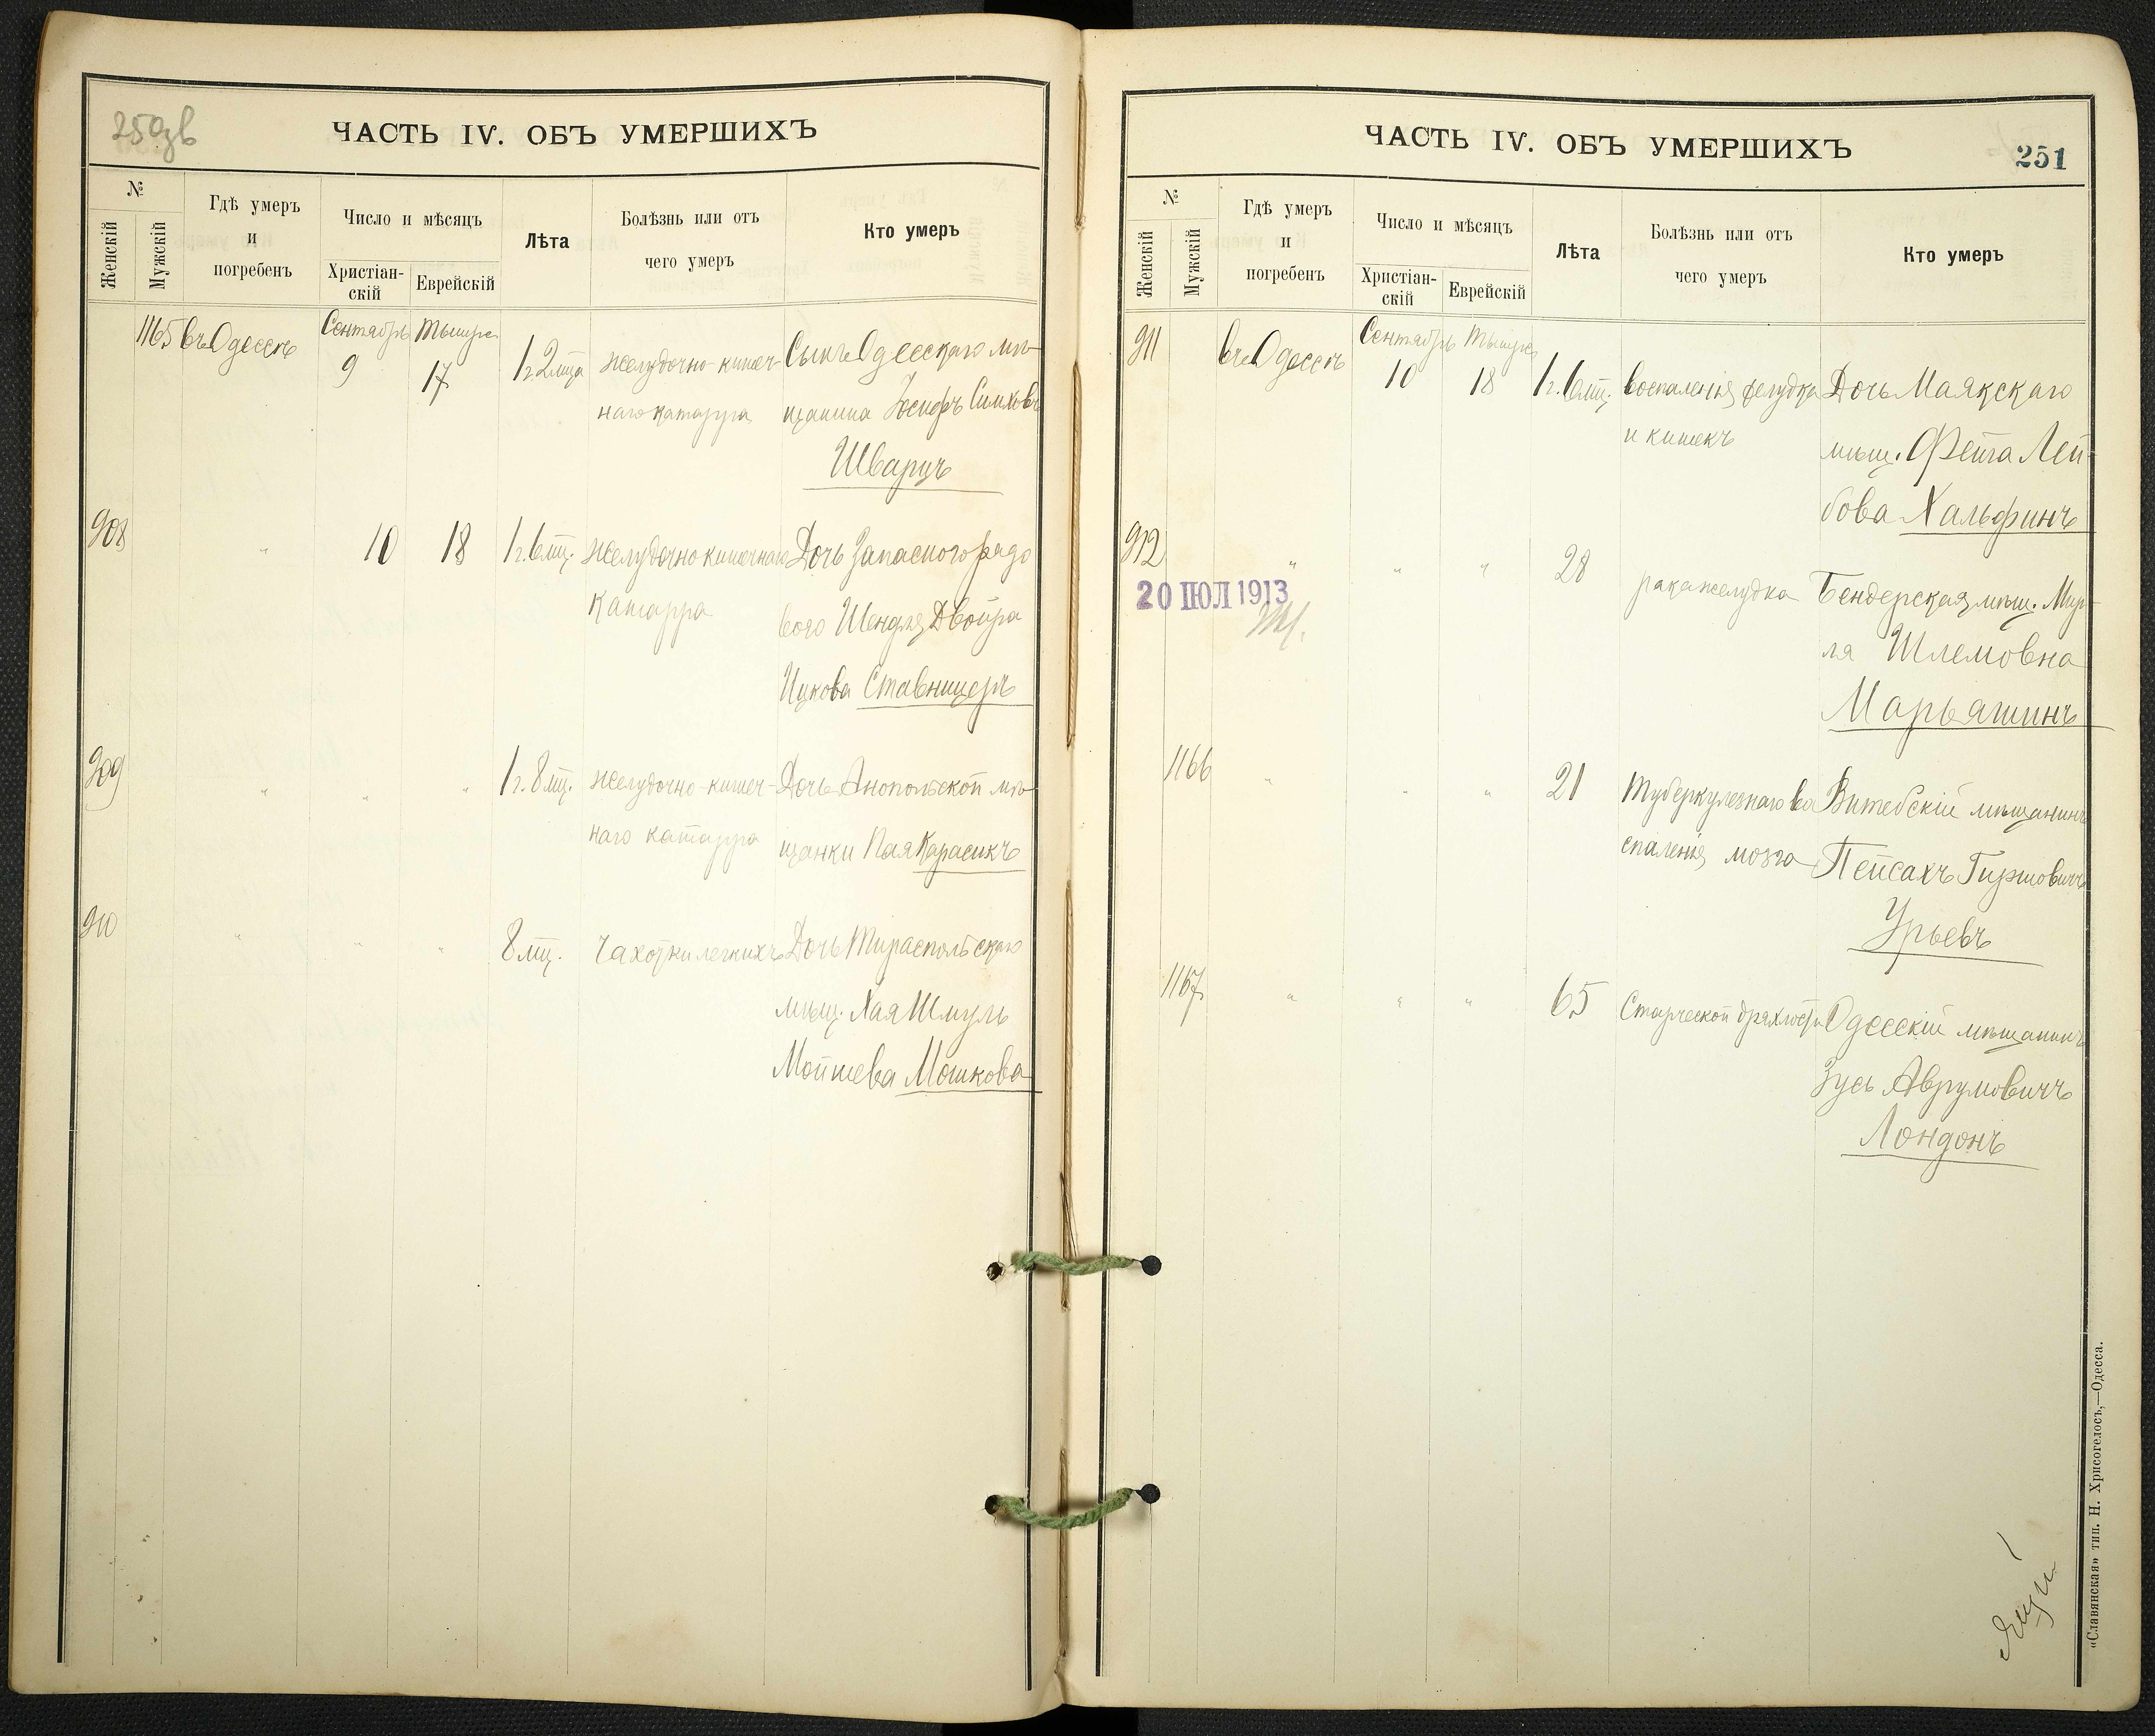 250зв
ЧАСТЬ IV. ОБЪ УМЕРШИХЪ
№
Женскій
Мужскій
Гдѣ умеръ
и
погребенъ
Число и мѣсяцъ
Христіан-
скій
Еврейскій
Лѣта
Болѣзнь или отъ
чего умеръ
Кто умеръ
1165 въ Одессѣ Сентябрь Тышре
9 17 1 г. 2 мца желудочно-кишеч- Сынъ Одесскаго мѣ-
наго катарра щанина Іосифъ Симховъ
Шварцъ
908 " 10 18 1 г. 6 мц. желудочно кишечнаго Дочь Запасного рядо
катарра вого Шендля Двойра
Ицкова Ставницеръ
909 " " " 1 г. 8 мц. желудочно-кишеч- Дочь Анопольской мѣ-
наго катарра щанки Пая Карасикъ
910 " " " 8 мц. Чахотки легкихъ Дочь Тираспольскаго
мѣщ. Хая Шмуль
Мойшева Мошкова
ЧАСТЬ IV. ОБЪ УМЕРШИХЪ
251
№
Женскій
Мужскій
Гдѣ умеръ
и
погребенъ
Число и мѣсяцъ
Христіан-
скій
Еврейскій
Лѣта
Болѣзнь или отъ
чего умеръ
Кто умеръ
911 въ Одессѣ Сентябрь Тышре
10 18 1 г. 6 мц. воспаленія желудка Дочь Маякскаго
и кишекъ мѣщ. Фейга Лей-
бова Хальфинъ
912 " " " 28 рака желудка Бендерская мѣщ. Мир-
20 ІЮЛ 1913
ля Шлемовна
Марьяшинъ
1166 " " " 21 Туберкулезнаго во Витебскій мѣщанинъ
спаленія мозга Пейсахъ Гиршовичъ
Урьевъ
1167 " " " 65 Старческой дряхлости Одесскій мѣщанинъ
Зусь Аврумовичъ
Лондонъ
«Славянская» тип. Н. Хрисогелосъ,—Одесса.